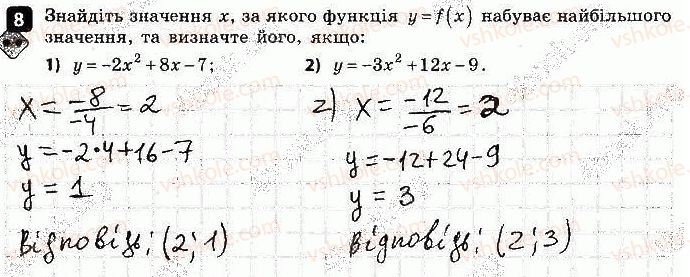 8 Знайдіть значення x, за якого функція y=f(x) набуває найбільшого
значення, та визначте його, якщо:
1) y=-2x²+8x-7; 2) y=-3x²+12x-9.
x = -8/-4 = 2
y = -2•4+16-7
y = 1
Відповідь; (2; 1)
2) x = -12/-6 = 2
y = -12+24-9
y = 3
Відповідь; (2; 3)